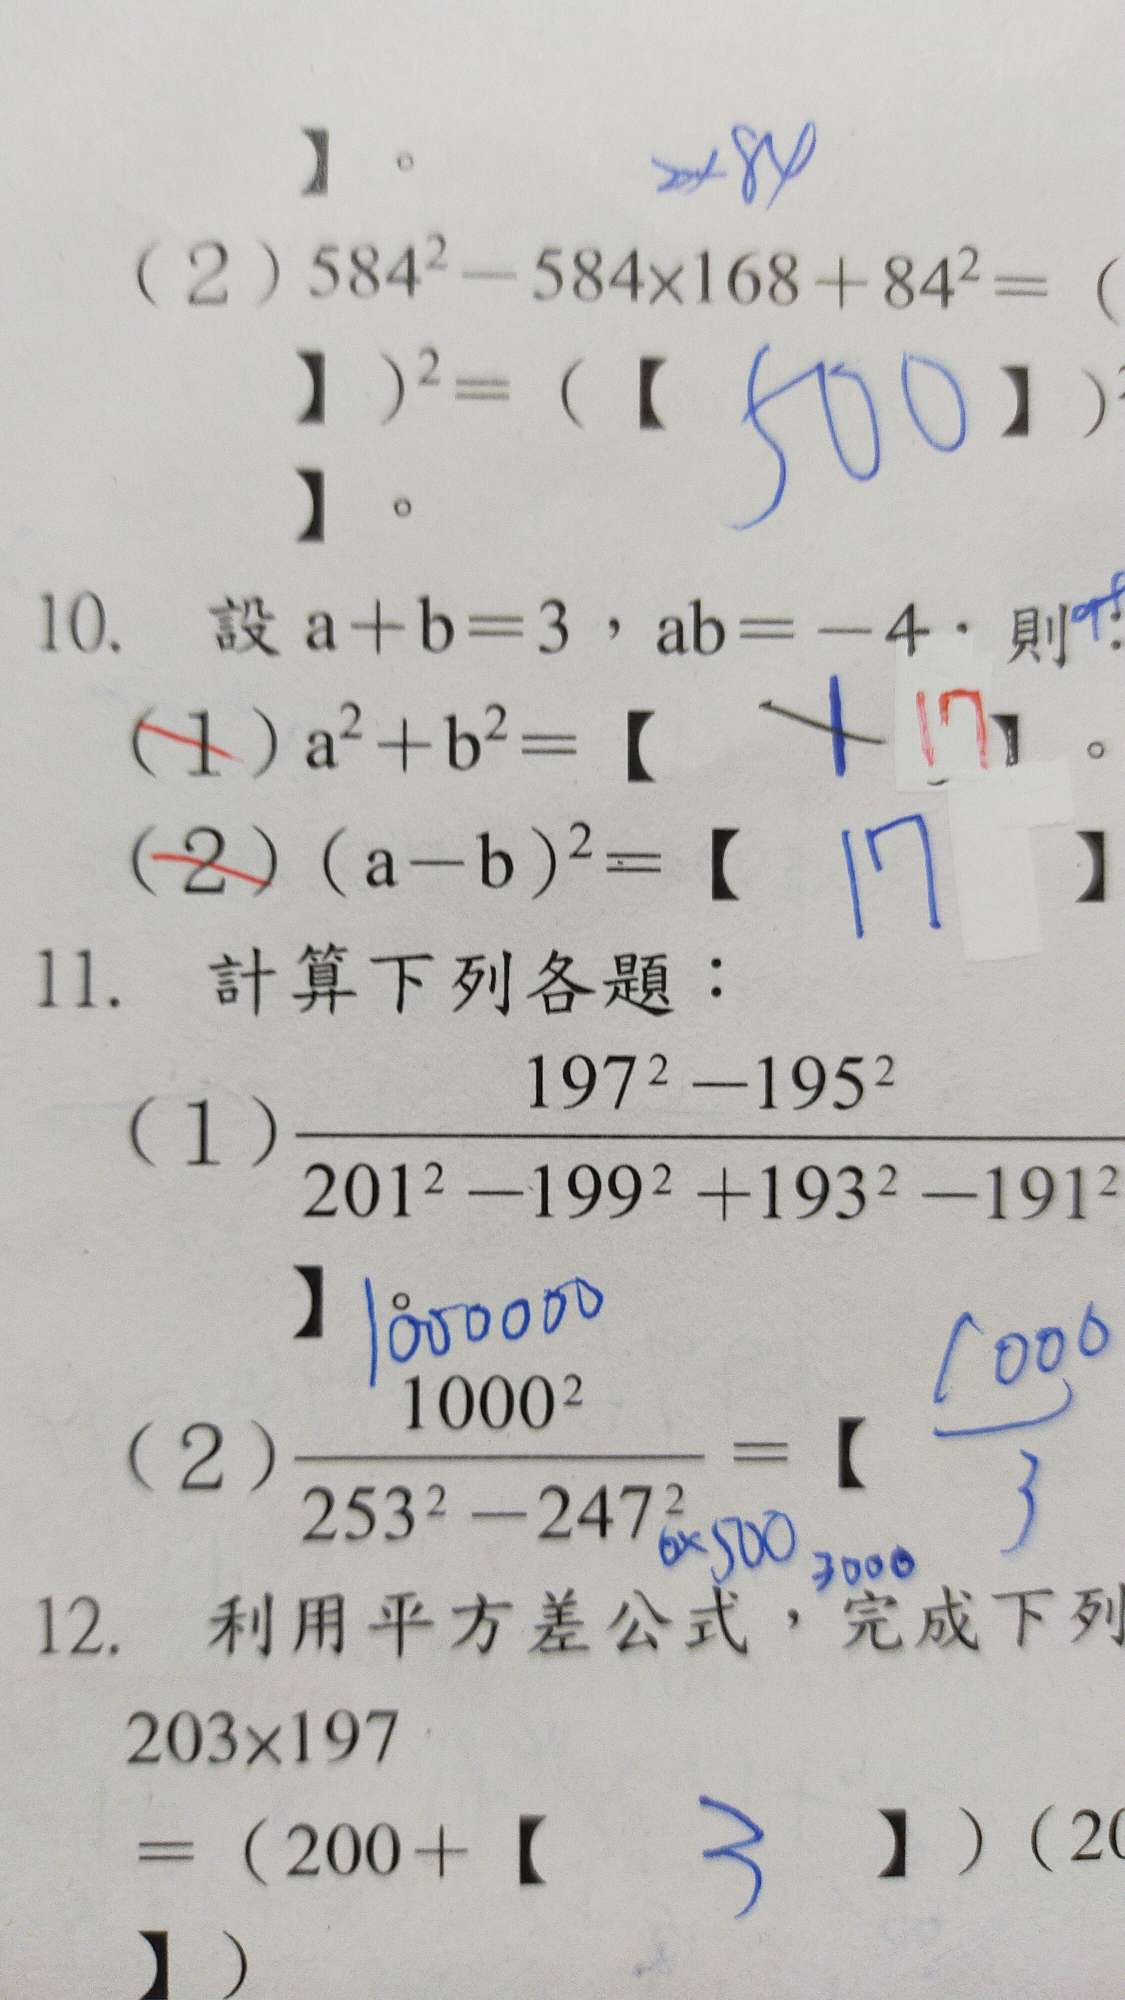 】。
2×84
(2)584²－584×168＋84²＝(
】)²＝(【 500 】)²
】。
10. 設 a＋b＝3，ab＝－4．則：
(1)a²＋b²＝【 1 17 】。
(2)(a－b)²＝【 17 】
11. 計算下列各題：
197²－195²
(1)
201²－199²＋193²－191²
】。
1000000
1000²
(2) ＝【 1000
253²－247² 3
6×500 3000
12. 利用平方差公式，完成下列
203×197
＝(200＋【 3 】)(20
】)